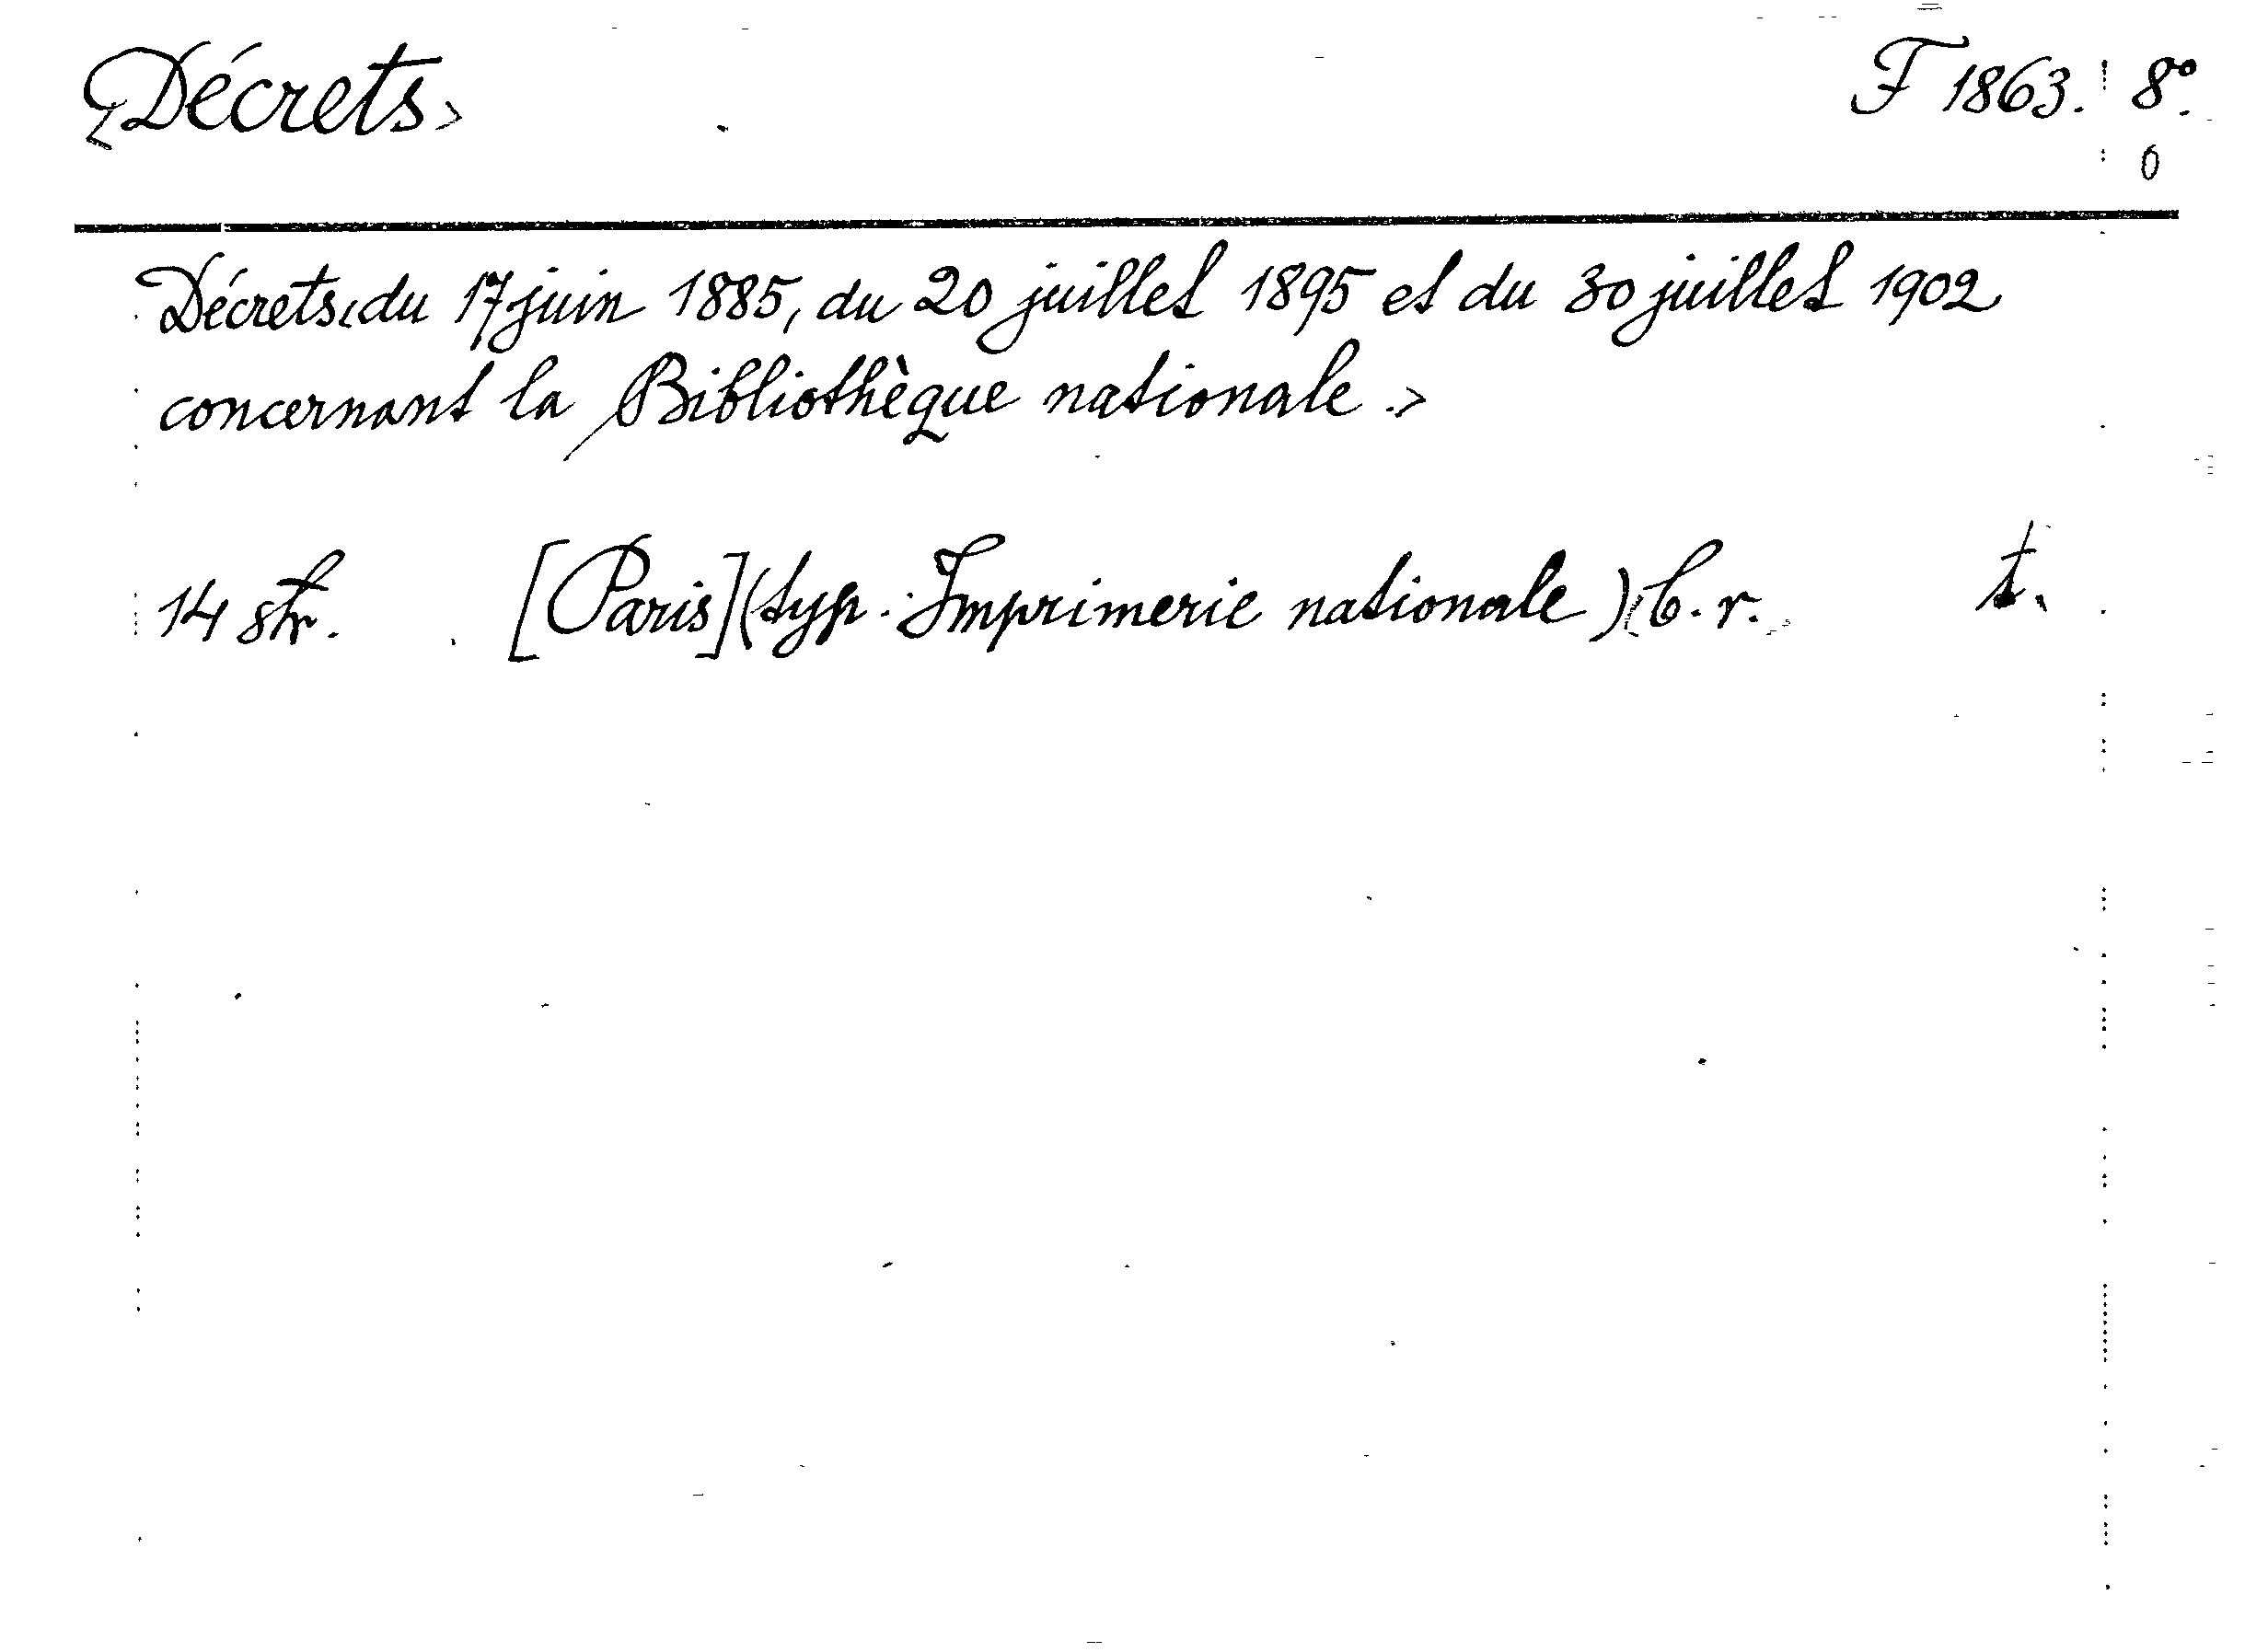 <Décrets> F 1863. 8º.
0
Décrets<du 17 juin 1885, du 20 juillet 1895 et du 30 juillet 1902
concernant la Bibliothèque nationale.>
14 str. [Paris](typ. Imprimerie nationale)<b.r.> t.